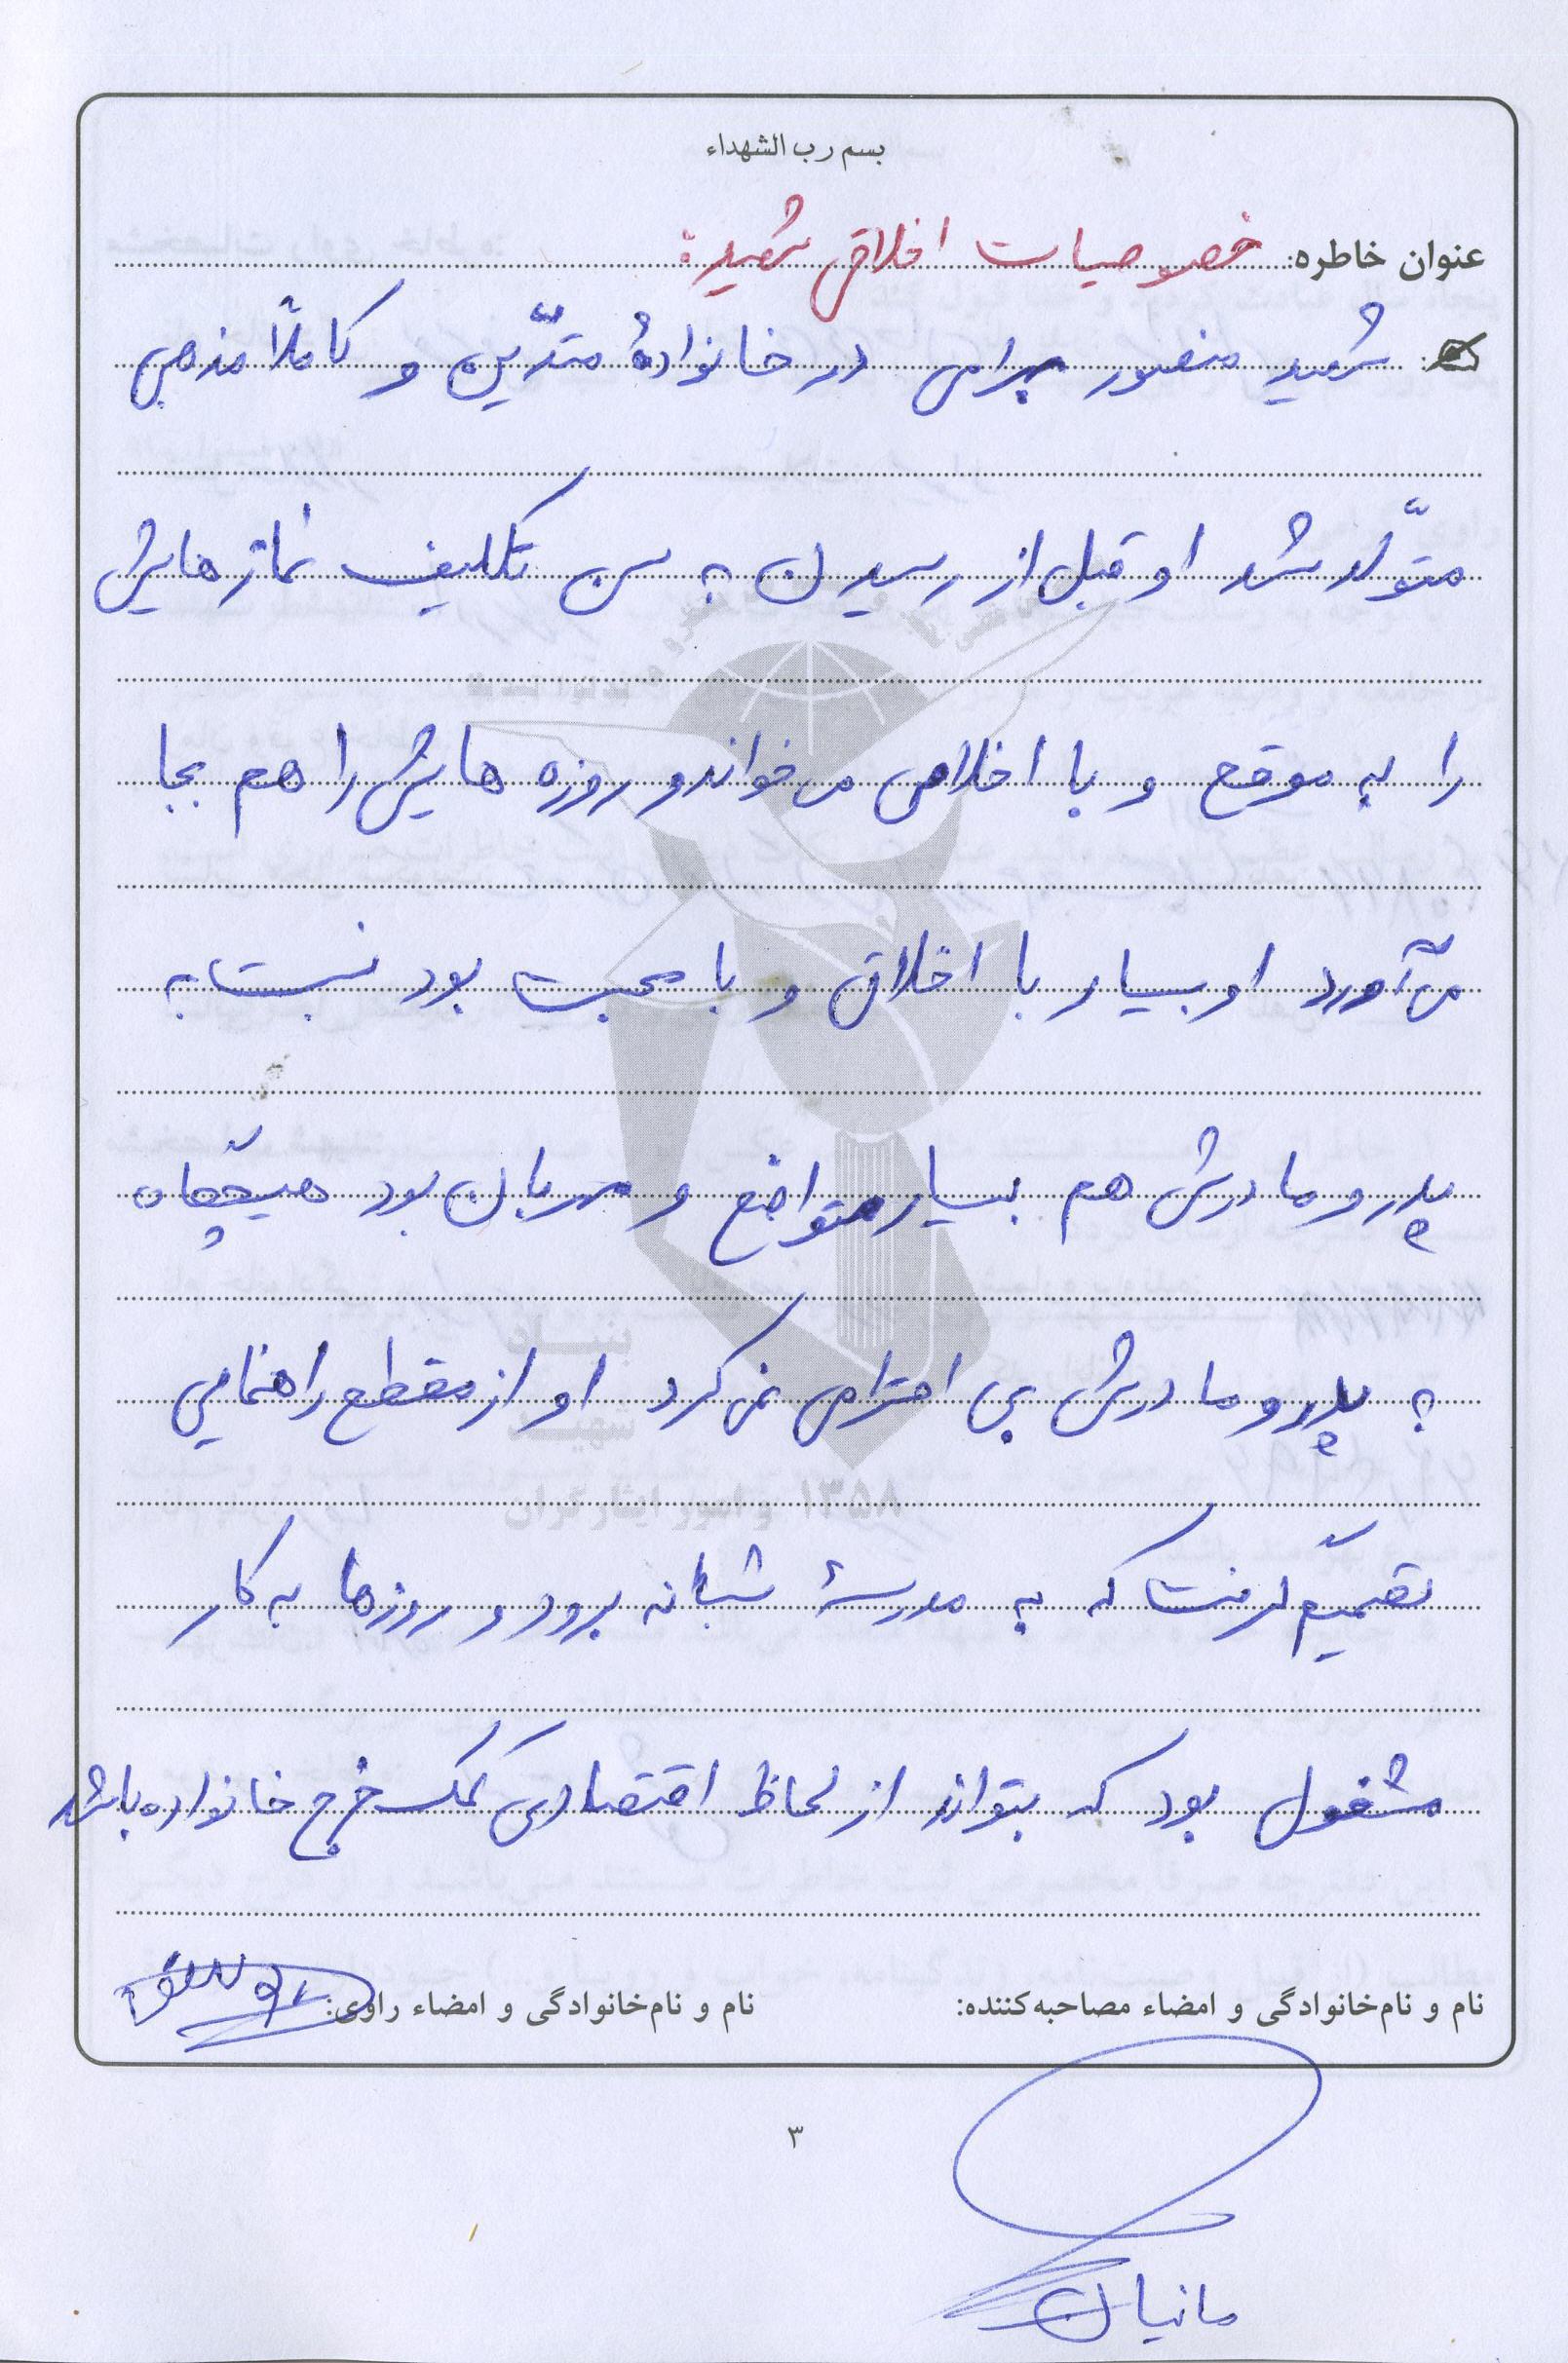 بسم رب الشهداء
عنوان خاطره: خصوصیات اخلاقی شهید:
شهید منصور بهرامی در خانوادهٔ متدّین و کاملاً مذهبی
متوّلد شد او قبل از رسیدن به سن تکلیف نمازهایش
را به موقع و با اخلاص می‌خواند و روزه هایش را هم بجا
می‌آورد او بسیار با اخلاق و با محبت بود نسبت به
پدر و مادرش هم بسیار متواضع و مهربان بود هیچگاه
به پدر و مادرش بی احترامی نمی‌کرد او از مقطع راهنمایی
تصمیم گرفت که به مدرسهٔ شبانه برود و روزها به کار
مشغول بود که بتواند از لحاظ اقتصادی کمک خرج خانواده باشد
نام و نام‌خانوادگی و امضاء مصاحبه‌کننده: نام و نام‌خانوادگی و امضاء راوی:
۳
مانیان
بنیاد
شهید
و امور ایثارگران ۱۳۵۸